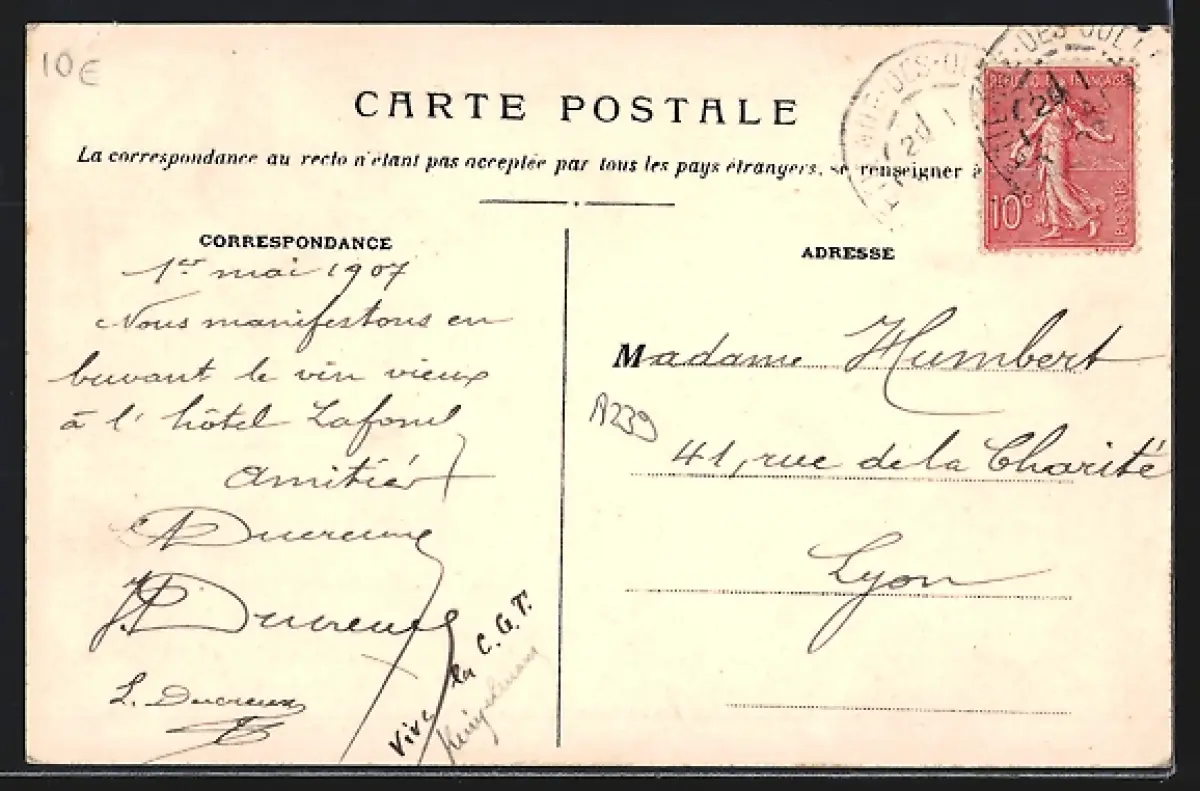 10€
CARTE POSTALE
La correspondance au recto n'étant pas acceptée par tous les pays étrangers, se renseigner à
RÉPUBLIQUE FRANÇAISE
10c
POSTES
CORRESPONDANCE
1er mai 1907
Nous manifestons en
buvant le vin vieux
à l'hôtel Lafond
Amitiés
Ducreux
Ducreux
L. Ducreux
Vive la C.G.T.
ADRESSE
Madame Humbert
A239
41, rue de la Charité
Lyon